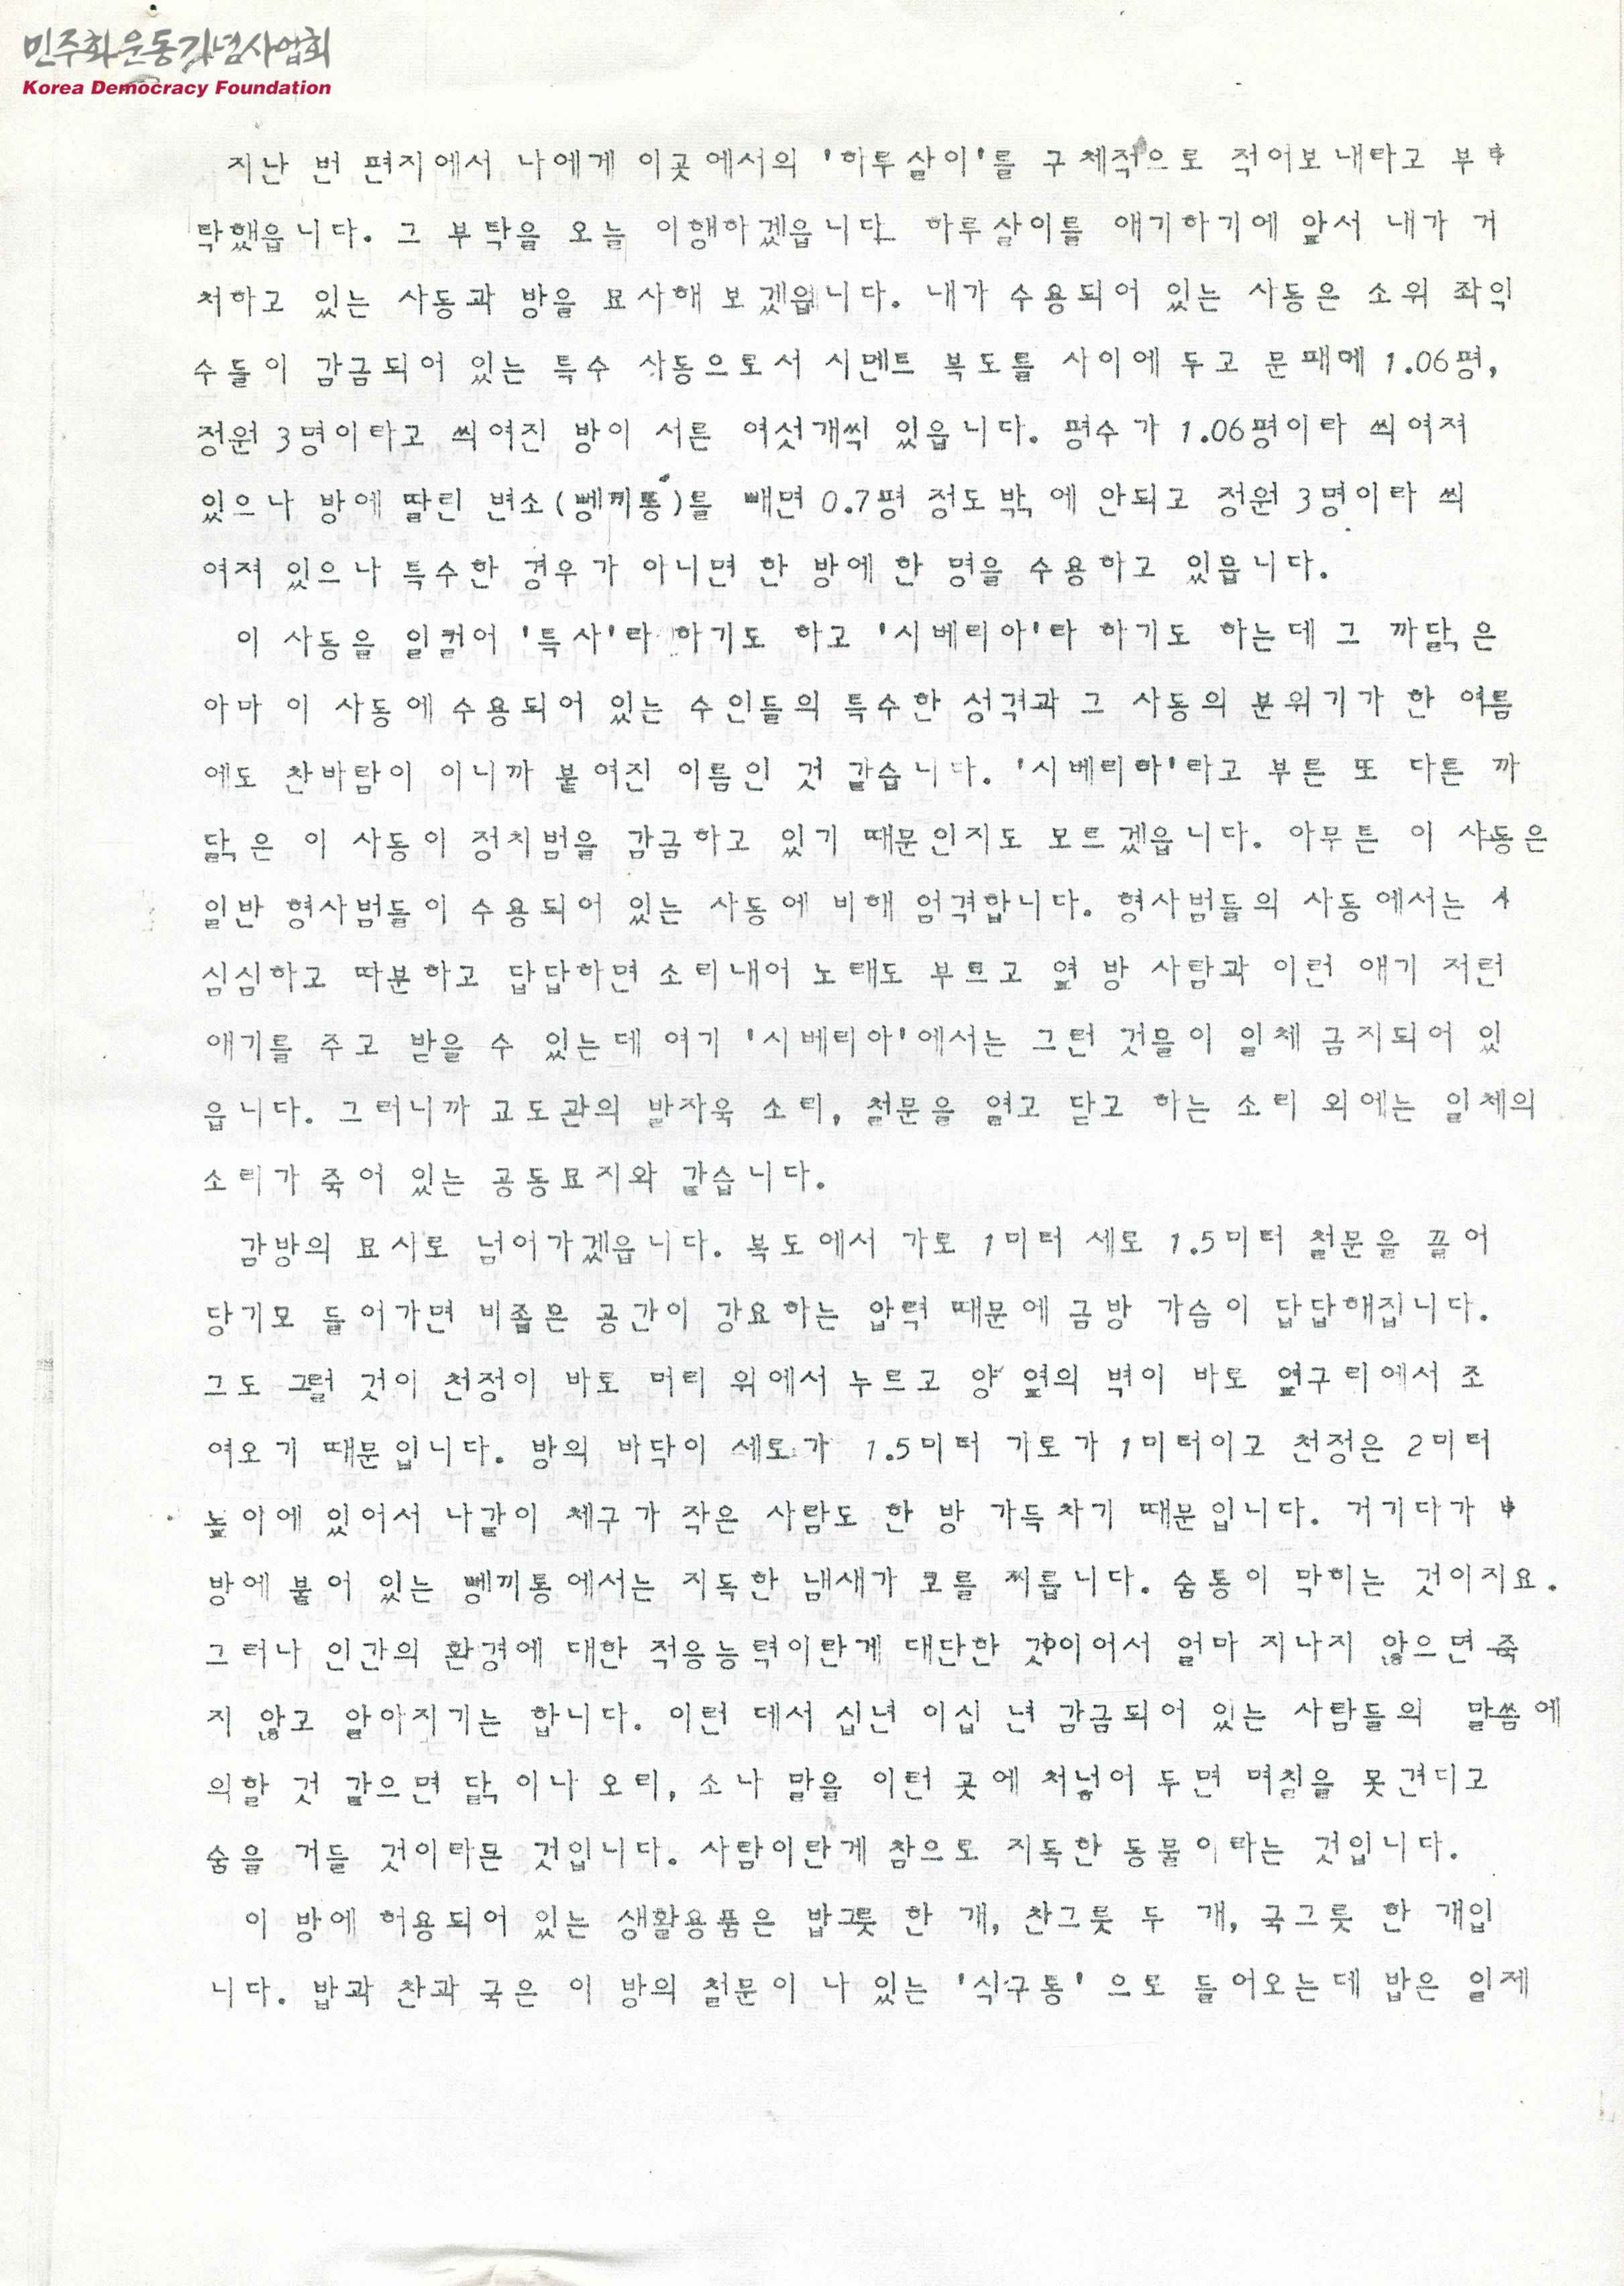 민주화운동기념사업회
Korea Democracy Foundation
지난 번 편지에서 나에게 이곳에서의 '하루살이'를 구체적으로 적어보내라고 부
탁했읍니다. 그 부탁을 오늘 이행하겠읍니다 하루살이를 얘기하기에 앞서 내가 거
처하고 있는 사동과 방을 묘사해 보겠읍니다. 내가 수용되어 있는 사동은 소위 좌익
수들이 감금되어 있는 특수 사동으로서 시멘트 복도를 사이에 두고 문패에 1.06평,
정원 3명이라고 씌여진 방이 서른 여섯개씩 있읍니다. 평수가 1.06평이라 씌여져
있으나 방에 딸린 변소(뺑끼통)를 빼면 0.7평 정도밖에 안되고 정원 3명이라 씌
여져 있으나 특수한 경우가 아니면 한 방에 한 명을 수용하고 있읍니다.
이 사동을 일컬어 '특사'라 하기도 하고 '시베리아'라 하기도 하는데 그 까닭은
아마 이 사동에 수용되어 있는 수인들의 특수한 성격과 그 사동의 분위기가 한 여름
에도 찬바람이 이니까 붙여진 이름인 것 같습니다. '시베리아'라고 부른 또 다른 까
닭은 이 사동이 정치범을 감금하고 있기 때문인지도 모르겠읍니다. 아무튼 이 사동은
일반 형사범들이 수용되어 있는 사동에 비해 엄격합니다. 형사범들의 사동에서는
심심하고 따분하고 답답하면 소리내어 노래도 부르고 옆 방 사람과 이런 얘기 저런
얘기를 주고 받을 수 있는데 여기 '시베리아'에서는 그런 것들이 일체 금지되어 있
읍니다. 그러니까 교도관의 발자욱 소리, 철문을 열고 닫고 하는 소리 외에는 일체의
소리가 죽어 있는 공동묘지와 같습니다.
감방의 묘사로 넘어가겠읍니다. 복도에서 가로 1미터 세로 1.5미터 철문을 끌어
당기모 들어가면 비좁은 공간이 강요하는 압력 때문에 금방 가슴이 답답해집니다.
그도 그럴 것이 천정이 바로 머리 위에서 누르고 양 옆의 벽이 바로 옆구리에서 조
여오기 때문입니다. 방의 바닥이 세로가 1.5미터 가로가 1미터이고 천정은 2미터
높이에 있어서 나같이 체구가 작은 사람도 한 방 가득차기 때문입니다. 거기다가
방에 붙어 있는 뺑끼통에서는 지독한 냄새가 코를 찌릅니다. 숨통이 막히는 것이지요.
그러나 인간의 환경에 대한 적응능력이란게 대단한 것이어서 얼마 지나지 않으면 죽
지 않고 살아지기는 합니다. 이런 데서 십년 이십 년 감금되어 있는 사람들의 말씀에
의할 것 같으면 닭이나 오리, 소나 말을 이런 곳에 처넣어 두면 며칠을 못견디고
숨을 거들 것이라믄 것입니다. 사람이란게 참으로 지독한 동물이라는 것입니다.
이 방에 허용되어 있는 생활용품은 밥그릇 한 개, 찬그릇 두 개, 국그릇 한 개입
니다. 밥과 찬과 국은 이 방의 철문이 나 있는 '식구통' 으로 들어오는데 밥은 일제